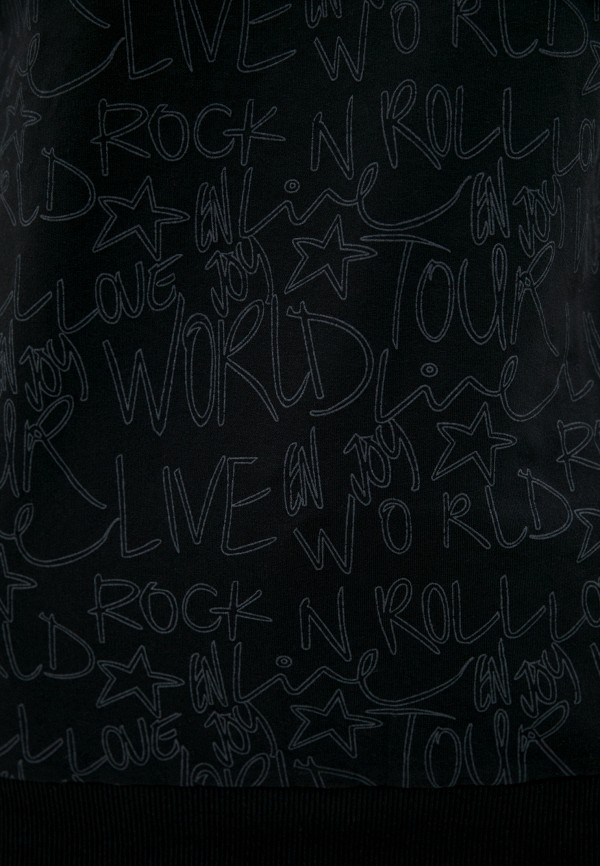 LIVE EN JOY WORLD
ROCK N ROLL
WORLD EN Live EN JOY
LOVE JOY TOUR
EN JOY WORLD Live
LIVE EN JOY WORLD
ROCK N ROLL
EN Live EN JOY
LOVE JOY TOUR
WORLD